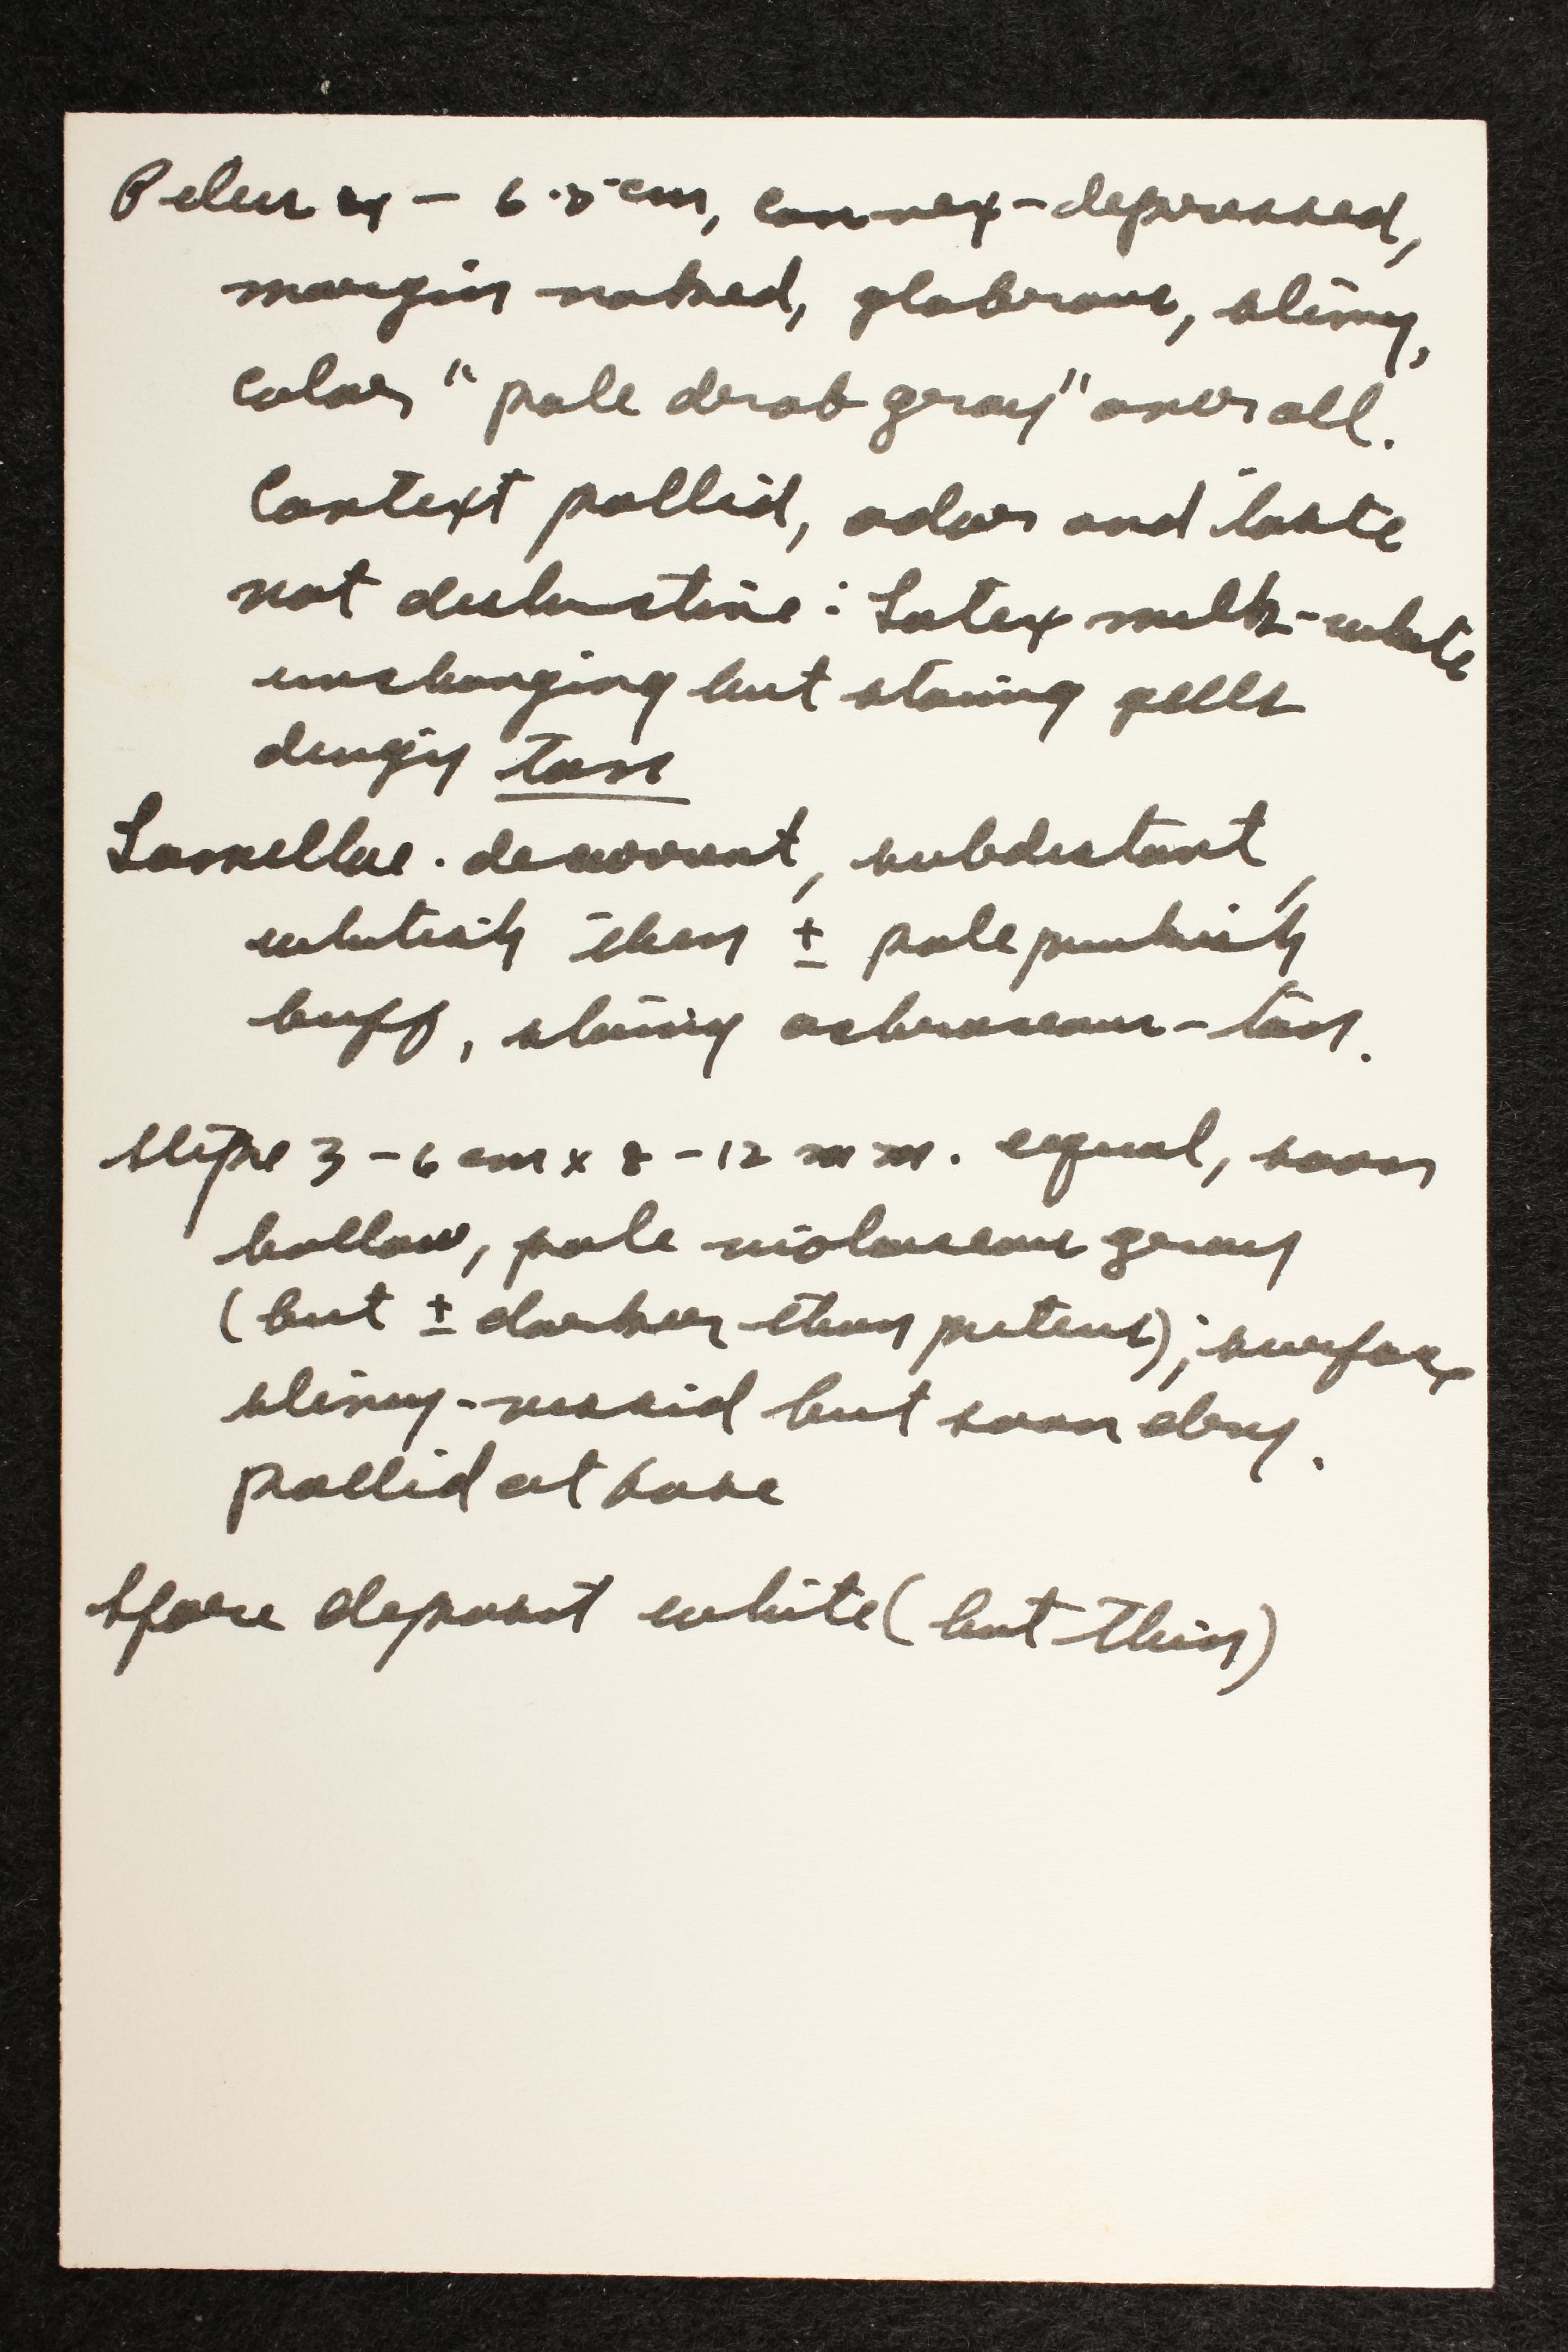 Pileus 4 - 6.5 cm, convex-depressed,
margin naked, glabrous, slimy,
color "pale drab gray" over all.
Context pallid, odor and taste
not distinctive: Latex milk-white
unchanging but staing gills
dingy tan
Lamellae. decurrent, subdistant,
whitish then ± pale pinkish
buff, staing ochraceous-tan.
Stipe 3-6 cm x 8-12 mm. equal, soon
hollow, pale violaceous gray
(but ± darker than pileus); surface
slimy-viscid but soon dry.
pallid at base
Spore deposit white (but thin)